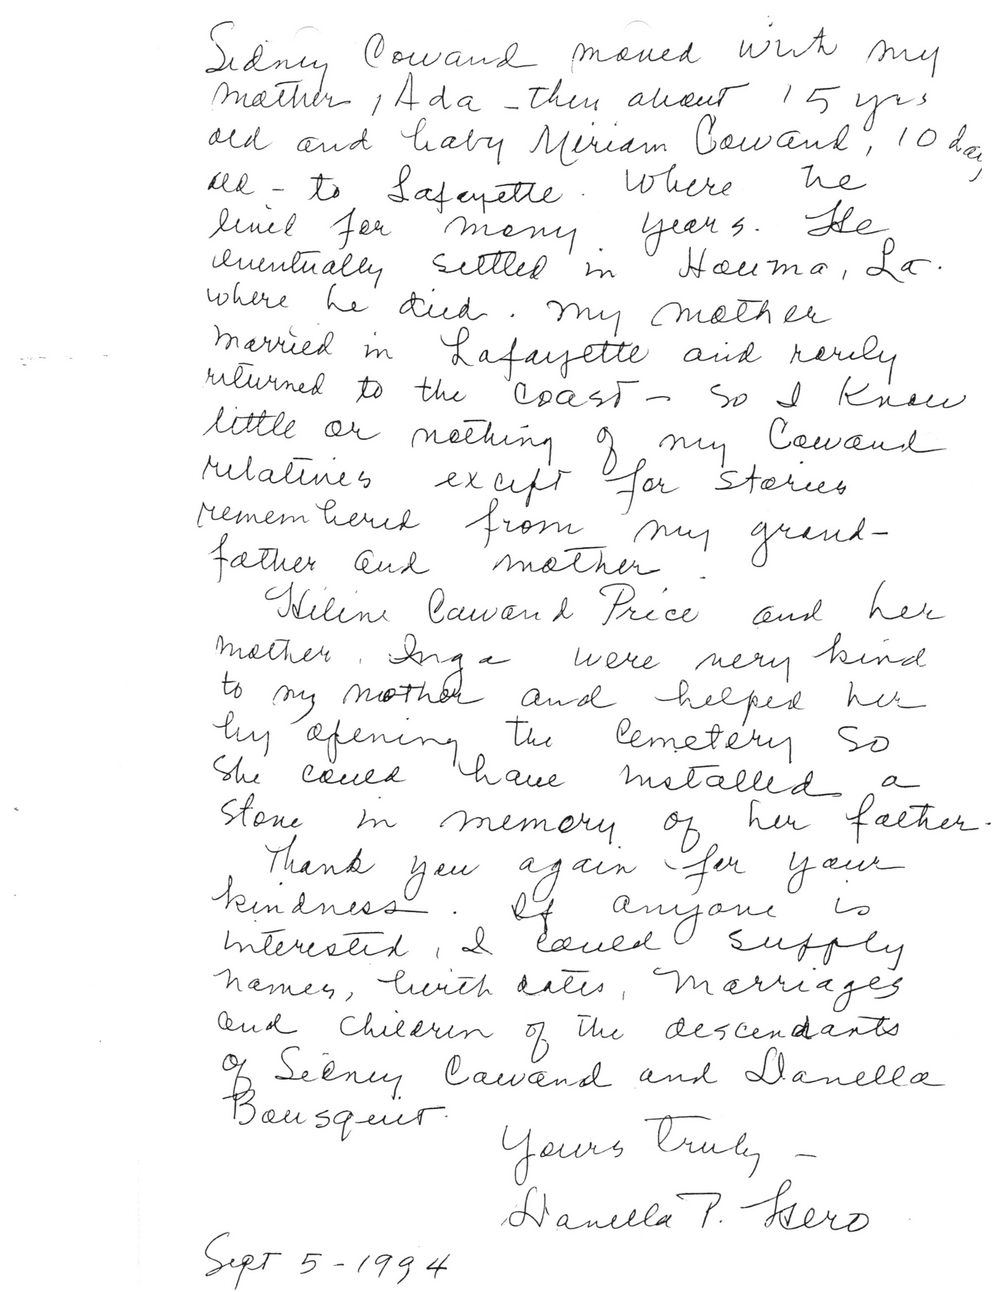 Sidney Cowand moved with my
mother, Ada - then about 15 yrs
old and baby Miriam Cowand, 10 days
old - to Lafayette. Where he
lived for many years. He
eventually settled in Houma, La.
where he died. My mother
married in Lafayette and rarely
returned to the coast - so I know
little or nothing of my Cowand
relatives except for stories
remembered from my grand-
father and mother.
Hiline Cowand Price and her
mother, Inga were very kind
to my mother and helped her
by opening the cemetery so
she could have installed a
stone in memory of her father.
Thank you again for your
kindness. If anyone is
interested, I could supply
names, birth dates, marriages
and children of the descendants
of Sidney Cowand and Danella
Bousquet.
Yours truly -
Danella P. Hero
Sept 5 - 1994